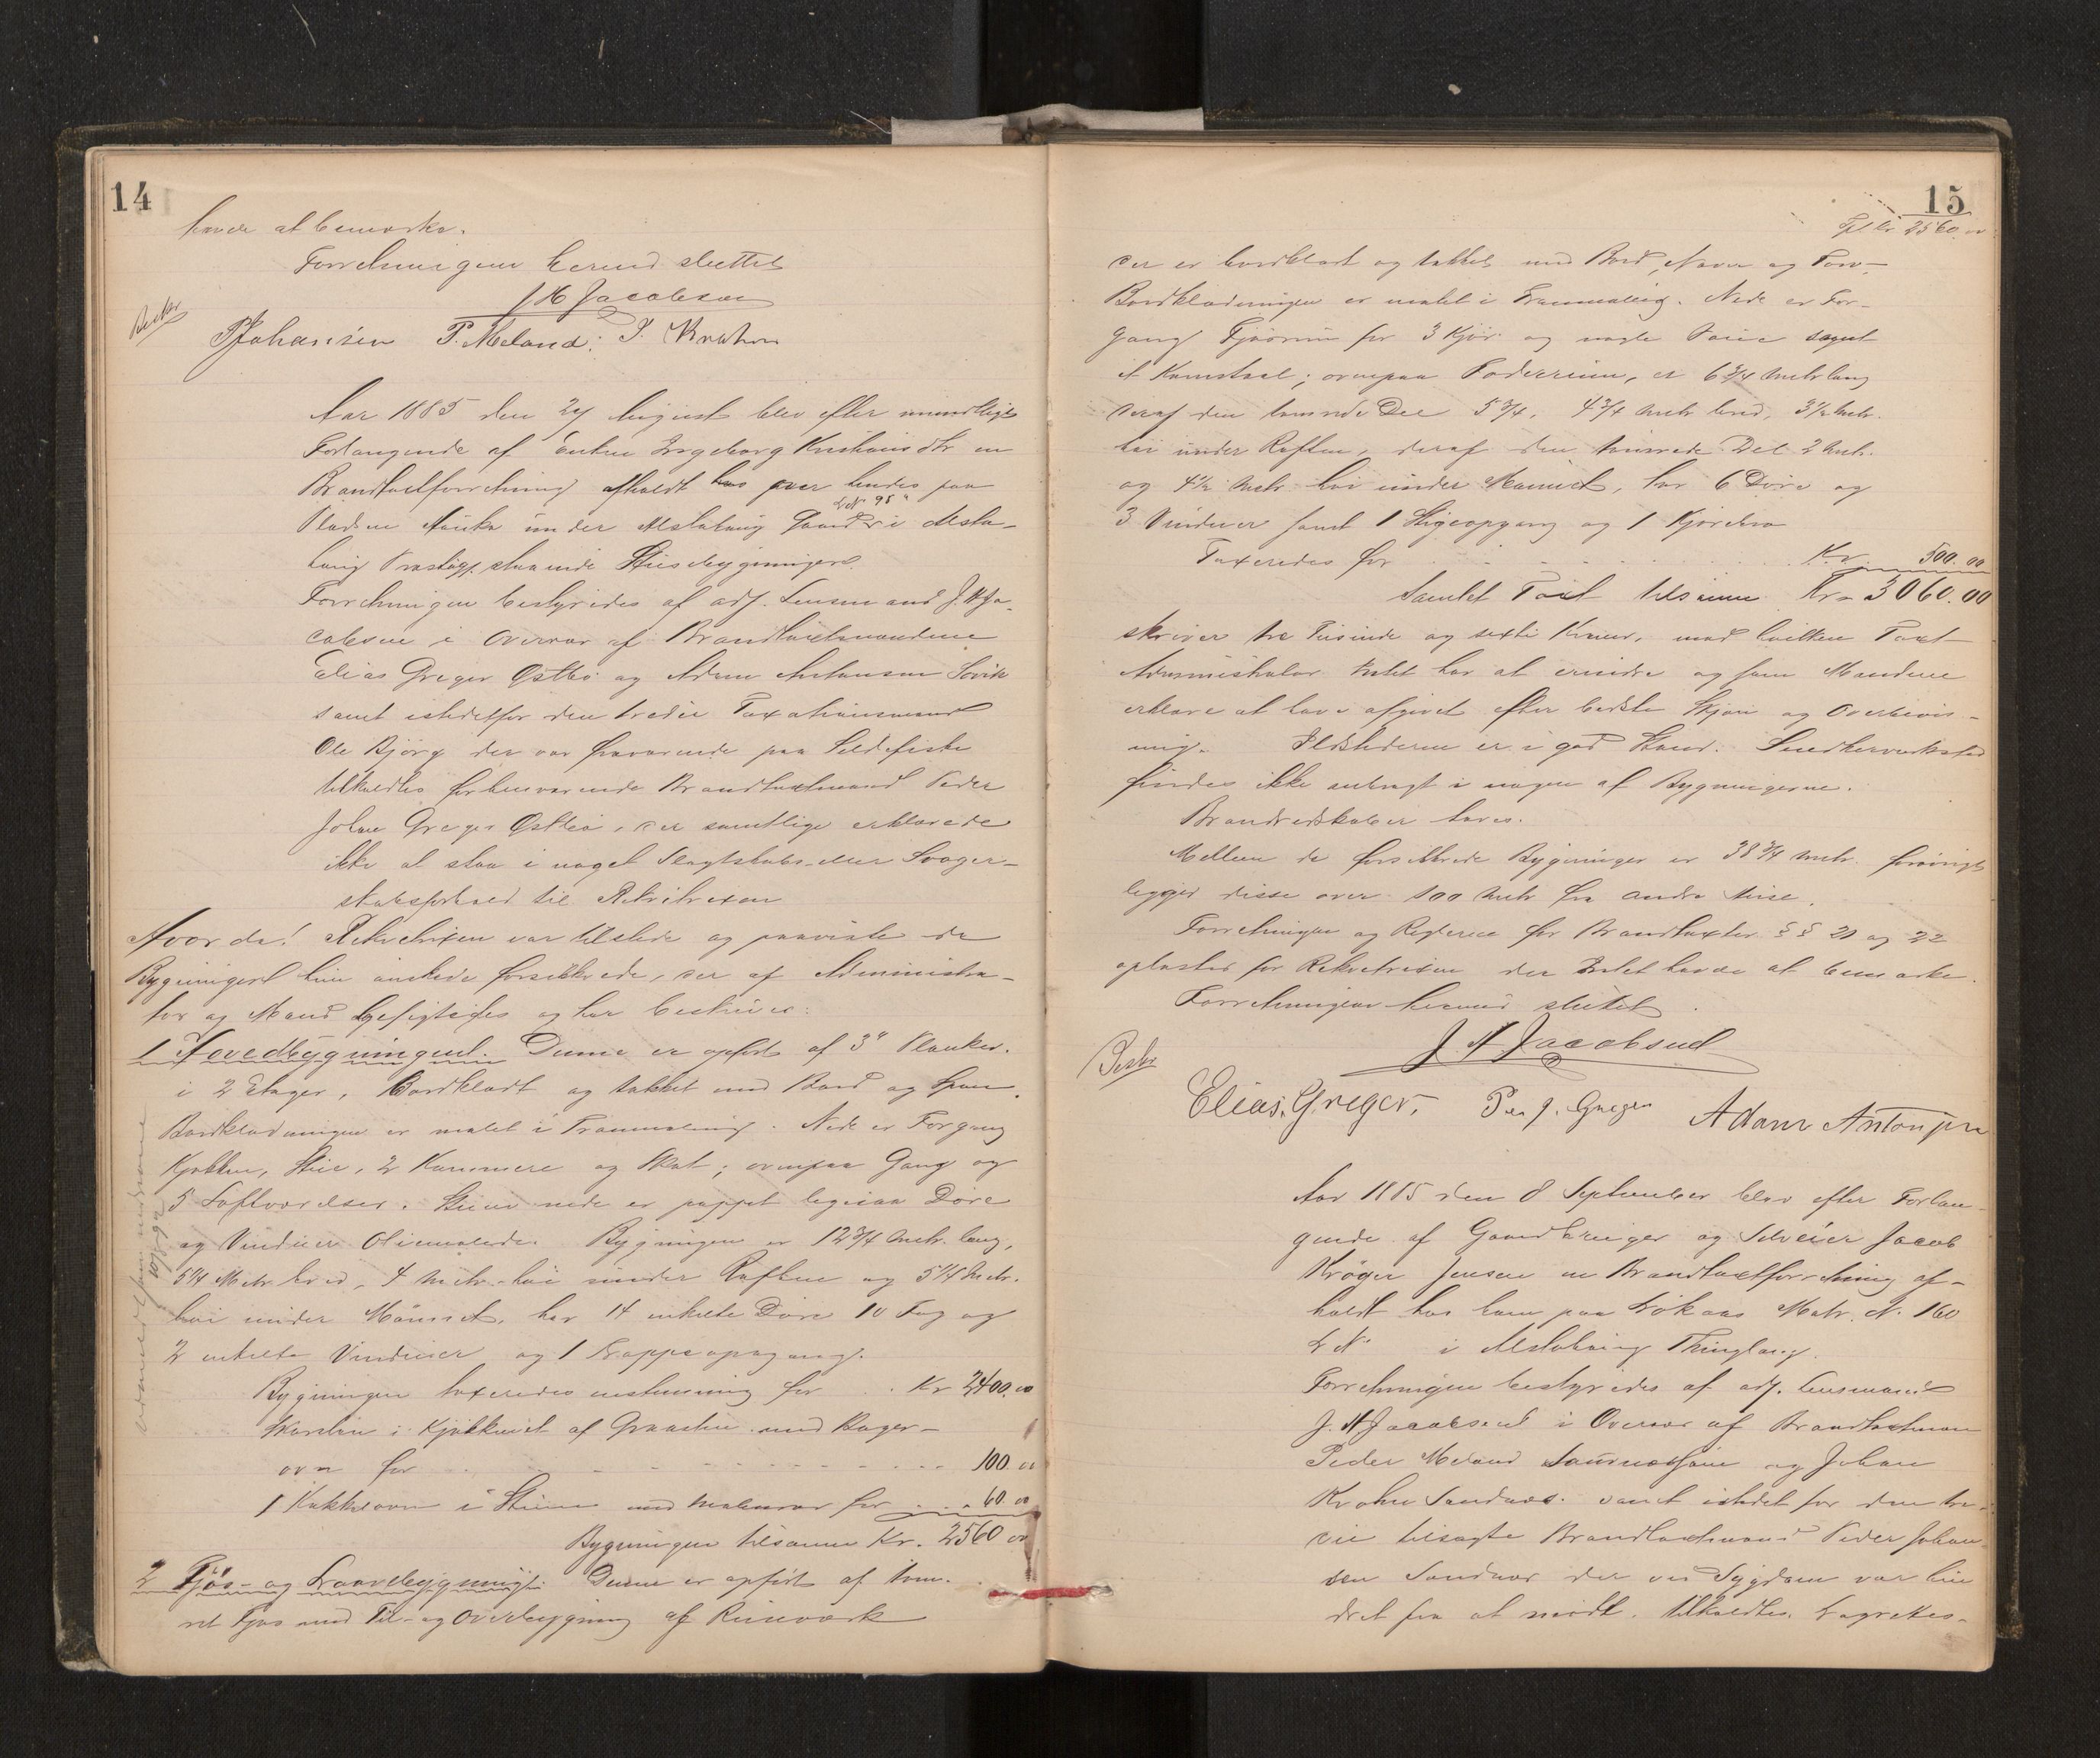 14
havde at bemærke.
Forretningen hermed sluttet
J H Jacobsen
Beskr
P Johansen P. Meland. J. Krohn
Aar 1885 den 27 August blev efter mundtligt
Forlangende af Enken Ingeborg Kristiansdtr en
Brandtaxtforretning afholdt hos paa hendes paa
LNo 95
Pladsen under Alstahaug Gaard i Alsta-
haug Præstegj. staaende Huusbygninger.
Forretningen bestyredes af adj. Lensmand J. H Ja-
cobsen i Overvær af Brandtaxtmændene
Elias Greger Østbø og Adam Antonsen Søvik
samt istedetfor den tredie Taxationsmand
Ole Bjørg der var fraværende paa Sildefiske
tilkaldtes forhenværende Brandtaxtmand Peder
Johan Greger Østbø, der samtlige erklærede
ikke at staa i noget Slægtskabs- eller Svoger-
skabsforhold til Rekvirenten
Hvor da! Rekvirenten var tilstede og paaviste de
Bygninger hun ønskede forsikkrede, der af Administra-
tor og Mænd besigtiges og her beskrives:
1 Hovedbygningen. Denne er opført af 3" Planker
i 2 Etager, Bordklædt og tækket med Bord og Spon.
Bordklædningen er malet i Tranmaling. Nede er Forgang
Kjøkken, Stue, 2 Kammere og Skab; ovenpaa Gang og
5 Loftværelser. Stuen nede er pappet ligesaa Døre
og Vinduer Oliemalede. Bygningen er 12 3/4 Metr. lang,
5 1/4 Metr. bred, 4 Metr. høi under Raften og 5 1/4 Metr.
høi under Mønnet, har 14 enkelte Døre 10 Fag og
2 enkelte Vinduer og 1 Trappeopgang.
Bygningen taxeredes enstemmig for . . Kr 2400.00
Skorsten i Kjøkkenet af Graasten med Bager-
ovn for . . . 100 00
1 Kakkelovn i Stuen med for . . . 60 00
Bygningen tilsammen Kr. 2560 00
2 Fjøs- og Laavebygning: Denne er opført af tøm-
ret Fjøs med Til- og Overbygning af Reisværk
15
Tpt Kr 2560.00
der er bordklædt og tækket med Bord, Næver og Torv.
Bordklædningen er malet i Tranmaling. Nede er For-
gang Fjøsrum for 3 Kjør og nogle samt
et ; ovenpaa Foderrum, er 6 3/4 Metr lang
deraf den tømrede Del 5 3/4, 4 3/4 Metr bred, 3 1/2 Metr.
høi under Raften, deraf den tømrede Del 2 Metr.
og 4 1/2 Metr høi under Mønnet, har 6 Døre og
3 Vinduer samt 1 Stigeopgang og 1 Kjørebro
Taxeredes for . . . Kr. 500.00
Samlet Taxt tilsammen Kr. 3060.00
skriver tre Tusinde og sexti Kroner, mod hvilken Taxt
Administrator Intet har at erindre og som Mændene
erklære at have afgivet efter bedste Skjøn og Overbevis-
ning. Ildstederne er i god Stand. Snedkerværksted
findes ikke anbragt i nogen af Bygningerne.
Brandredskaber haves.
Mellem de forsikkrede Bygninger er 38 3/4 Metr. forøvrigt
ligger disse over 100 Metr fra andre Huse.
Forretningen og Reglerne for Brandtaxter §§ 21 og 22
oplæstes for Rekvirenten der Intet havde at bemærke.
Forretningen hermed sluttet.
J. H Jacobsen
Beskr
Elias. Greger. Per J. Greger Adam Antonsen
Aar 1885 den 8 September blev efter Forlan-
gende af Gaardbruger og Selveier Jacob
Krøger Jensen en Brandtaxtforretning af-
holdt hos ham paa Løkaas Matr. N. 160
LN. i Alstahaug Thinglag.
Forretningen bestyredes af adj. Lensmand
J. H Jacobsen i Overvær af Brandtaxtmænd
Peder Meland og Johan
Krohn Sandnæs. samt istedet for den tre-
die tilsagte Brandtaxtmand Peder Johan
sen Sandnæs der ved Sygdom var hin
dret fra at møde. tilkaldtes Lagrettes-